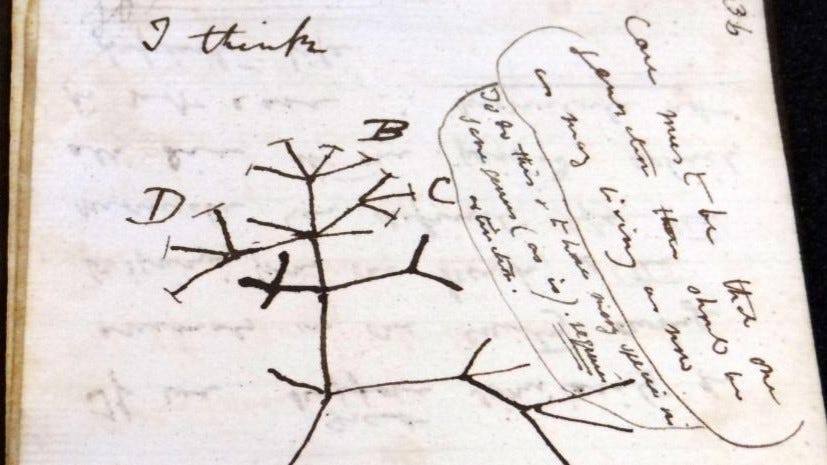 I think
36
Case must be that one
generation then should be
as many living as now
To do this & to have many species in
same genus (as is). requires
extinction.
B
C
D